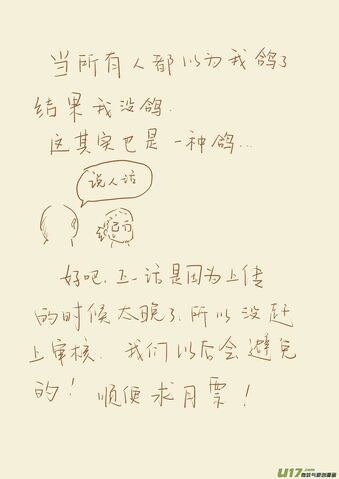 当所有人都以为我鸽了
结果我没鸽.
这其实也是一种鸽...
说人话
好吧.五一话是因为上传
的时候太晚了.所以没赶
上审核.我们以后会避免
的！顺便求月票！
U17.com
有妖气原创漫画